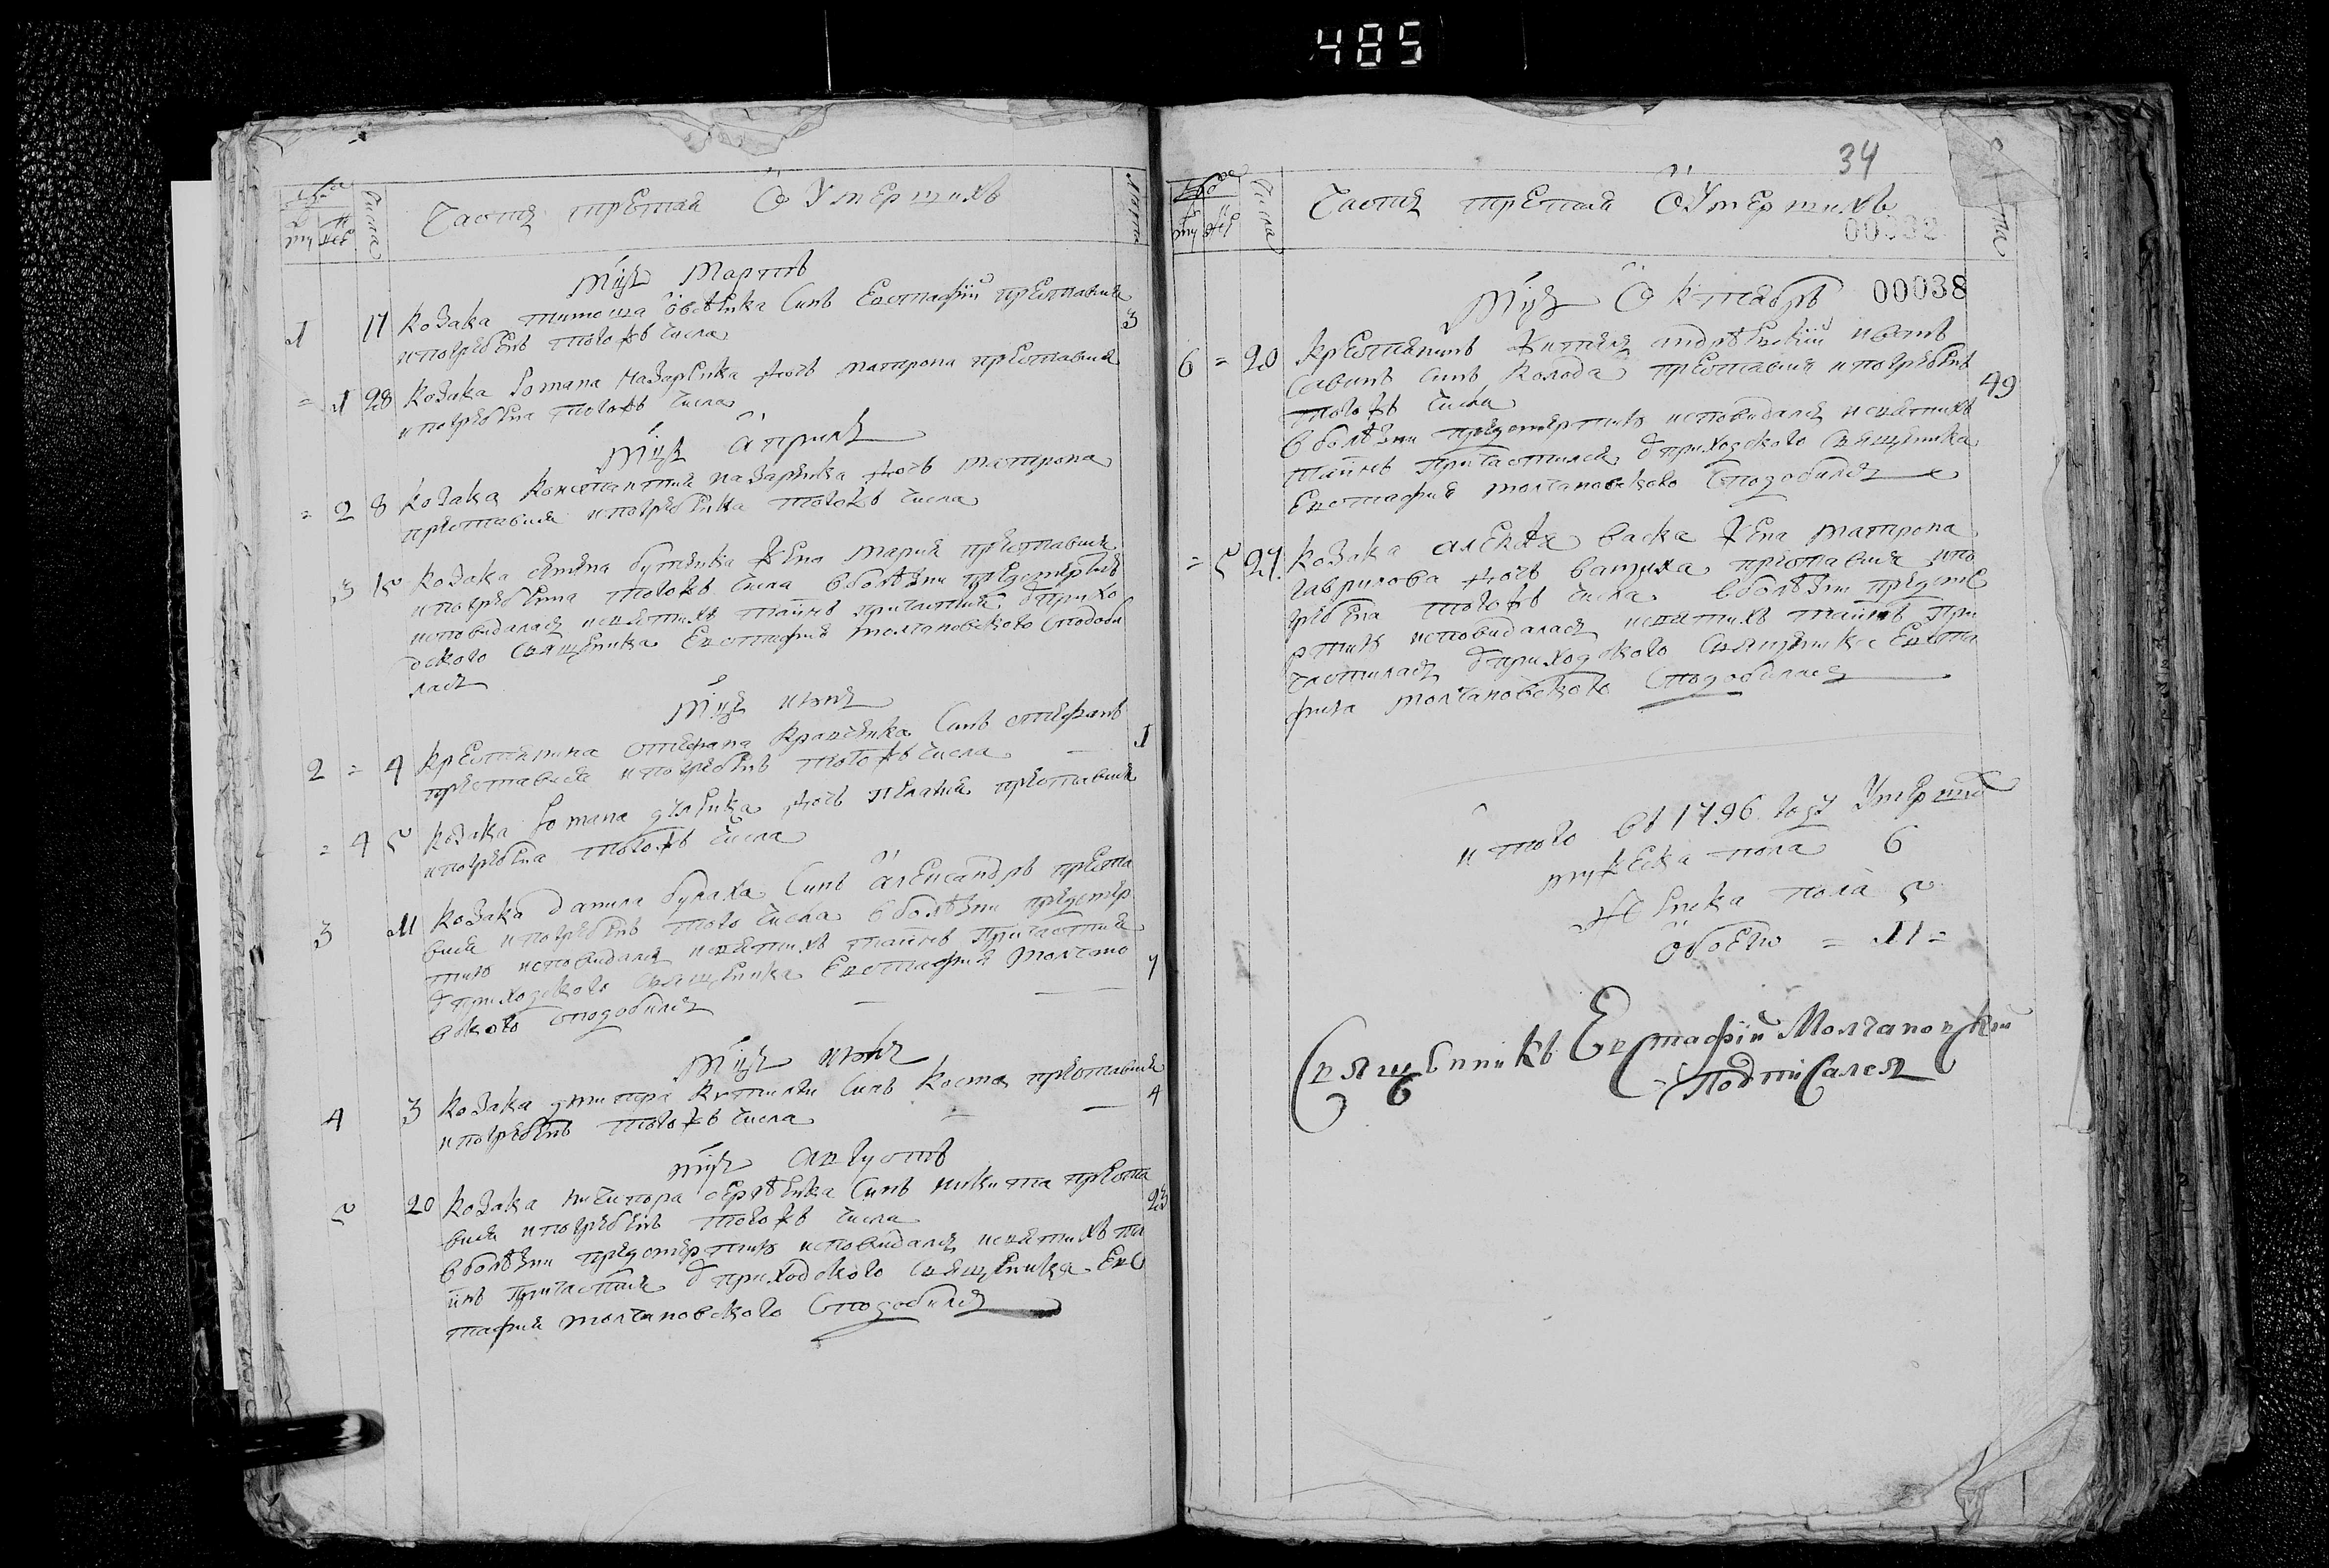 485
Часть третая О Умерших
числа
лѣта
Мцъ Мартъ
1 17 Козака тимоша Евстафий преставися 3
и погребенъ того жъ числа
= 1 28 Козака Романа Назаренка дочь матрона преставися
и погребена того жъ числа
Мцъ Априль
= 2 8 Козака Константия назаренка дочь матрона
преставися и погребенна того жъ числа
3 15 Козака семена бутенка жена мария преставися
и погребенна того жъ числа в болѣзни предсмертной
исповидалась и святихъ таинъ причастия от прихо
дского священика Евстафия молчановского сподоби
лась
Мцъ июнь
2 = 4 Крестянина стефана Кравченка синъ стефанъ 1
преставися и погребенъ того жъ числа
= 4 5 Козака Романа дяченка дочь пелагия преставися
и погребена того жъ числа
3 11 Козака данила булаха синъ александръ преста
вися и погребенъ того числа в болѣзни предсмер
тной исповидался и святихъ таинъ причастия
от приходского священика Евстафия Молчано 7
вского сподобился
Мцъ июль
4 3 Козака дмитра синъ Косма преставися 4
и погребенъ того жъ числа
Мцъ августъ
5 20 Козака ничипора сергѣенка синъ никита преста 23
вися и погребенъ того жъ числа
в болѣзни предсмертной исповидался и святихъ та
инъ причастия от приходского священика Евс
тафия молчановского Сподобился
34
Часть третая О Умершихъ
00032
числа
Мцъ Октябрь 00038
6 = 20 Крестянинъ житель андрѣевский иванъ
савинъ синъ Колода преставися и погребенъ 49
того жъ числа
в болѣзни предсмертной исповидался и святихъ
таинъ Причастился от приходского Священика
Евстафия молчановского Сподобился
= 5 27 Козака алексѣя васка жена матрона
гаврилова дочь преставися и по
гребена того жъ числа в болѣзни предсме
ртной исповидалась и святихъ таинъ при
частилась от приходского Священика Евста
фия молчановского Сподобилась
итого въ 1796 году Умерших
мужеска пола 6
женска пола 5
обоего = 11 =
Священникъ Евстафій Молчановскій
Подписался